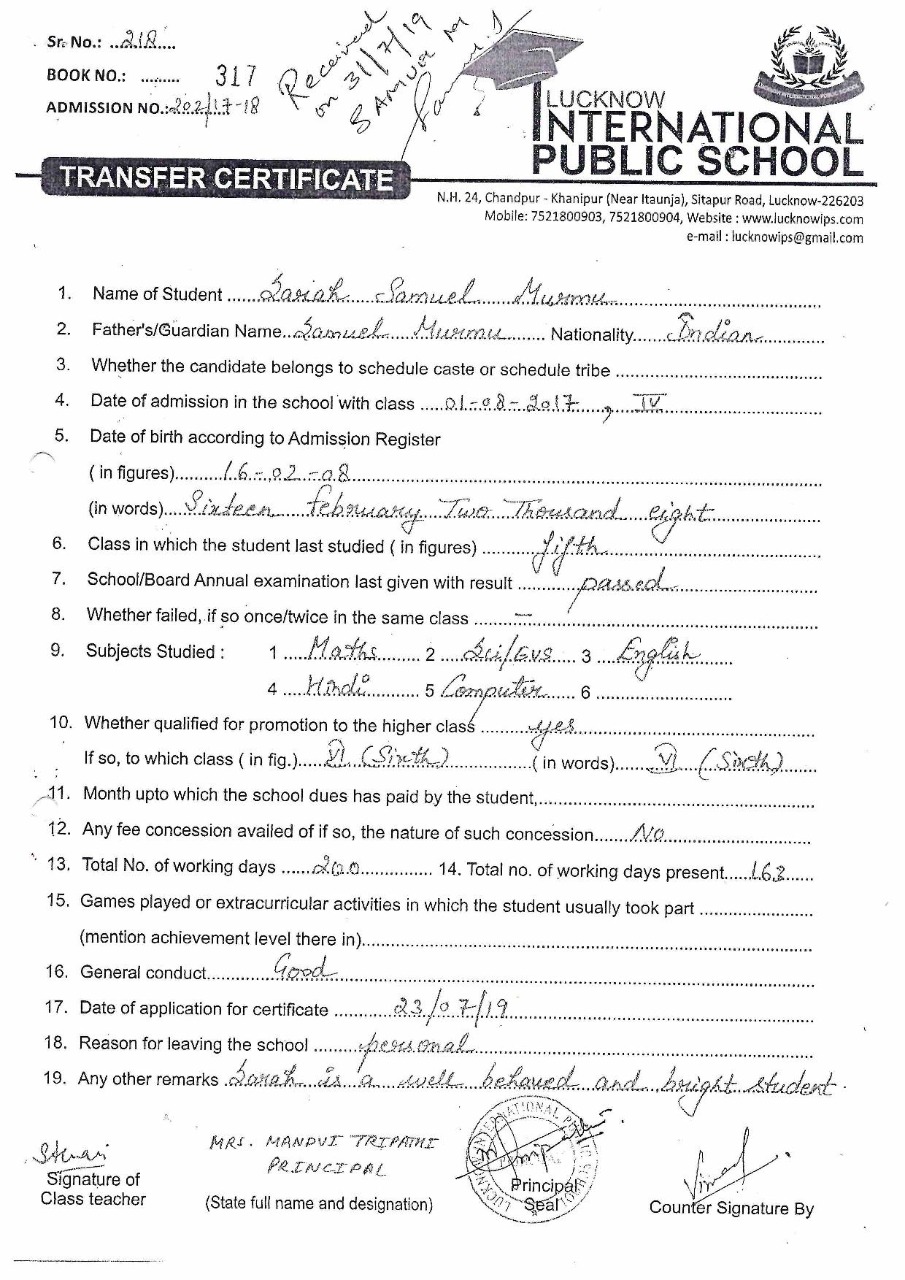 Sr. No.: ..218....
BOOK NO.: ......... 317
ADMISSION NO.:202/17-18
Received
on 31/7/19
SAMUEL M
LUCKNOW
INTERNATIONAL
PUBLIC SCHOOL
TRANSFER CERTIFICATE
N.H. 24, Chandpur - Khanipur (Near Itaunja), Sitapur Road, Lucknow-226203
Mobile: 7521800903, 7521800904, Website : www.lucknowips.com
e-mail : lucknowips@gmail.com
1. Name of Student ...... Sarah Samuel Murmu
2. Father's/Guardian Name.. Samuel Murmu ........ Nationality...... Indian
3. Whether the candidate belongs to schedule caste or schedule tribe ...................
4. Date of admission in the school with class .... 01-08-2017, IV
5. Date of birth according to Admission Register
( in figures)......... 16-02-08
(in words).... Sixteen February Two Thousand eight
6. Class in which the student last studied ( in figures) .......... fifth
7. School/Board Annual examination last given with result .......... passed
8. Whether failed, if so once/twice in the same class ....... —
9. Subjects Studied : 1 .... Maths ........ 2 .... Sci/EVS ... 3 .... English ......
4 .... Hindi .......... 5 Computer ..... 6 ......................
10. Whether qualified for promotion to the higher class ......... yes
If so, to which class ( in fig.).... VI (Sixth) ...............( in words)..... VI (Sixth)
11. Month upto which the school dues has paid by the student,.............................
12. Any fee concession availed of if so, the nature of such concession...... No
13. Total No. of working days ...... 200 .............. 14. Total no. of working days present.... 163 .....
15. Games played or extracurricular activities in which the student usually took part ...................
(mention achievement level there in)..............................................
16. General conduct............ Good
17. Date of application for certificate .......... 23/07/19
18. Reason for leaving the school ........ personal
19. Any other remarks Sarah is a well behaved and bright student .
MRS. MANDVI TRIPATHI
PRINCIPAL
Signature of
Class teacher
(State full name and designation)
Principal
Seal
Counter Signature By